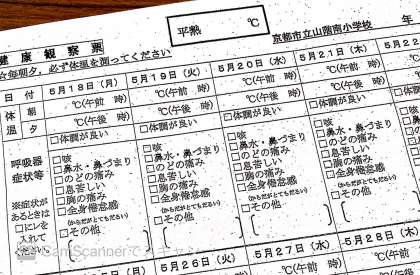 平熱 ℃
京都市立山階南小学校 年
健康観察票
☆毎朝夕，必ず体温を測ってください
日付 5月18日（月） 5月19日（火） 5月20日（水） 5月21日（木） 5月22
体温 朝 ℃(午前 時) ℃(午前 時) ℃(午前 時) ℃(午前 時)
夕 ℃(午後 時) ℃(午後 時) ℃(午後 時) ℃(午後 時)
□体調が良い □体調が良い □体調が良い □体調が良い
呼吸器
症状等
※症状が
あるときは
□に✓を
入れて
□咳
□鼻水・鼻づまり
□のどの痛み
□息苦しい
□胸の痛み
□全身倦怠感
(からだがとてもださい)
□その他
□咳
□鼻水・鼻づまり
□のどの痛み
□息苦しい
□胸の痛み
□全身倦怠感
(からだがとてもださい)
□その他
□咳
□鼻水・鼻づまり
□のどの痛み
□息苦しい
□胸の痛み
□全身倦怠感
(からだがとてもださい)
□その他
□咳
□鼻水・鼻づまり
□のどの痛み
□息苦しい
□胸の痛み
□全身倦怠感
(からだがとてもださい)
□その他
CamScanner
5月26日（火） 5月27日（水） 5月28日（木）
℃(午前 時) ℃(午前